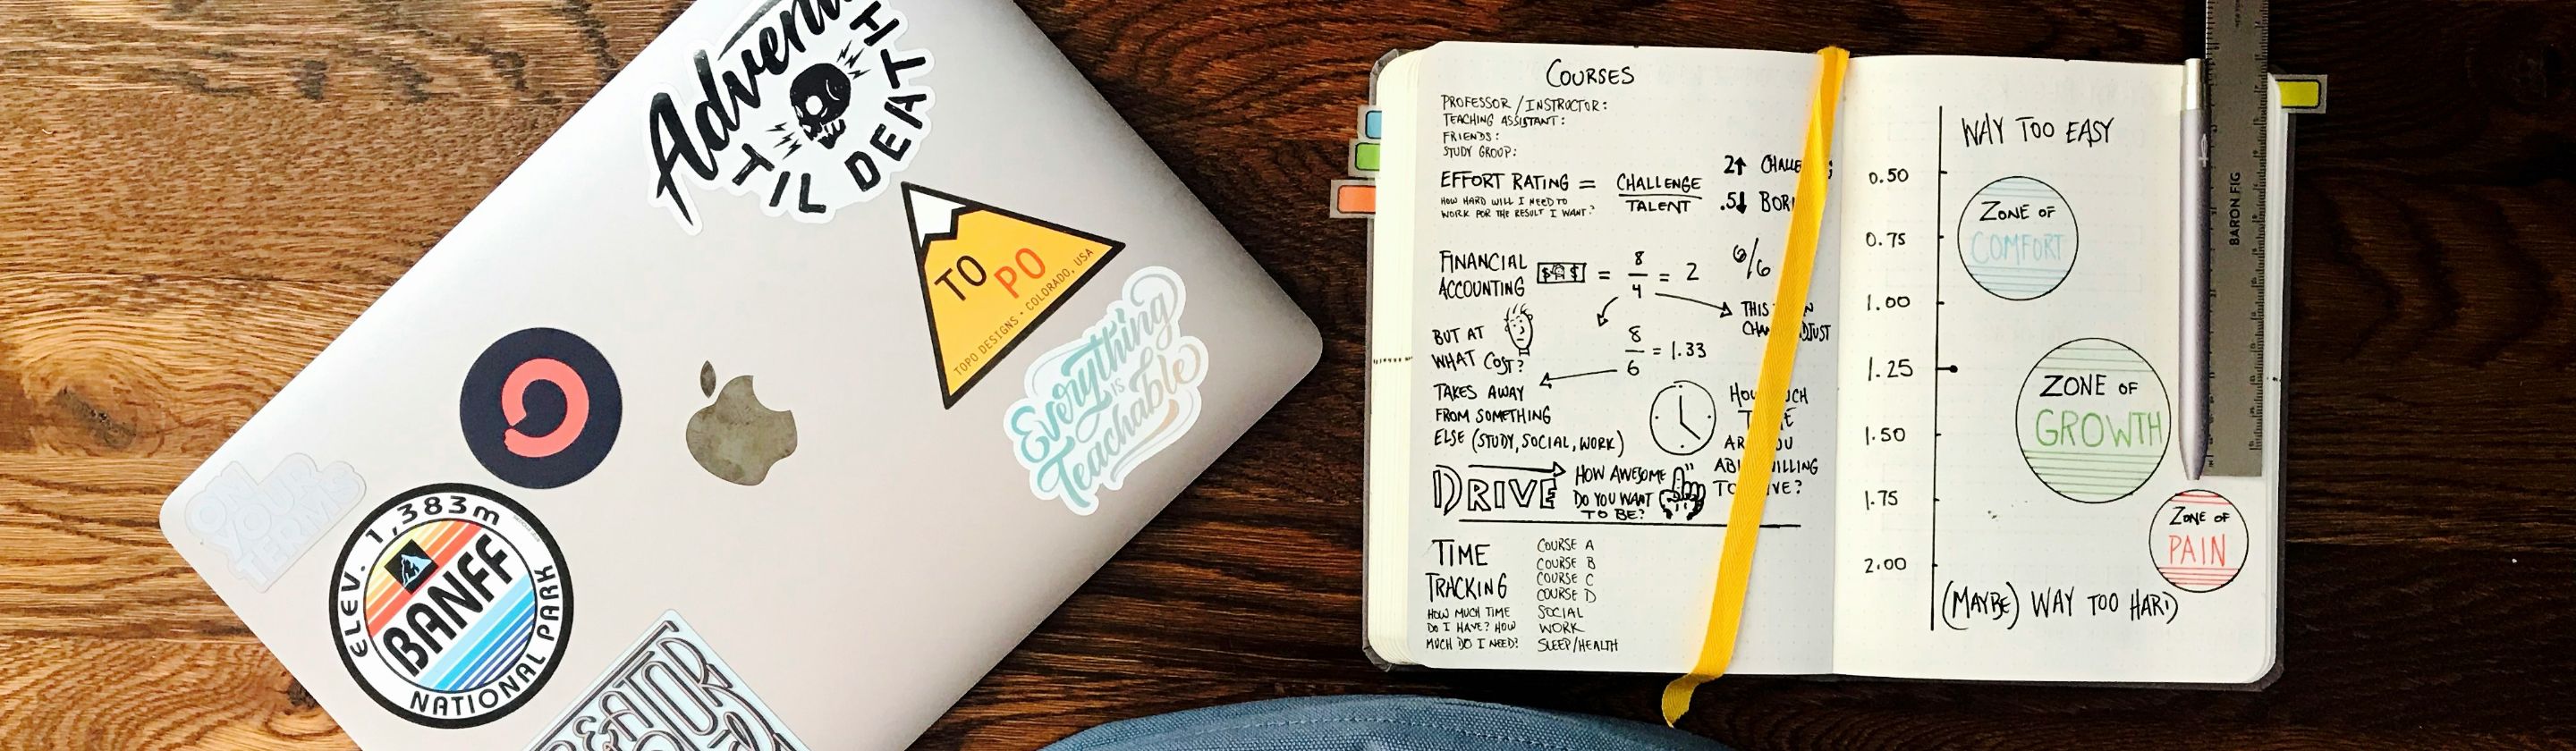 TIL DEATH
TO PO
TOPO DESIGNS • COLORADO, USA
Everything
IS
Teachable
ON
YOUR
TERMS
ELEV. 1,383m
BANFF
NATIONAL PARK
COURSES
PROFESSOR / INSTRUCTOR:
TEACHING ASSISTANT:
FRIENDS:
STUDY GROUP:
EFFORT RATING = CHALLENGE
TALENT
HOW HARD WILL I NEED TO
WORK FOR THE RESULT I WANT?
2↑
.5↓
FINANCIAL
ACCOUNTING
$ $ = 8/4 = 2
6/6
THIS
BUT AT
WHAT COST?
8/6 = 1.33
TAKES AWAY
FROM SOMETHING
ELSE (STUDY, SOCIAL, WORK)
DRIVE
HOW AWESOME
DO YOU WANT
TO BE?
TIME
TRACKING
HOW MUCH TIME
DO I HAVE? HOW
MUCH DO I NEED?
COURSE A
COURSE B
COURSE C
COURSE D
SOCIAL
WORK
SLEEP/HEALTH
WAY TOO EASY
0.50
ZONE OF
COMFORT
0.75
1.00
1.25
ZONE OF
GROWTH
1.50
1.75
ZONE OF
PAIN
2.00
(MAYBE) WAY TOO HARD
BARON FIG